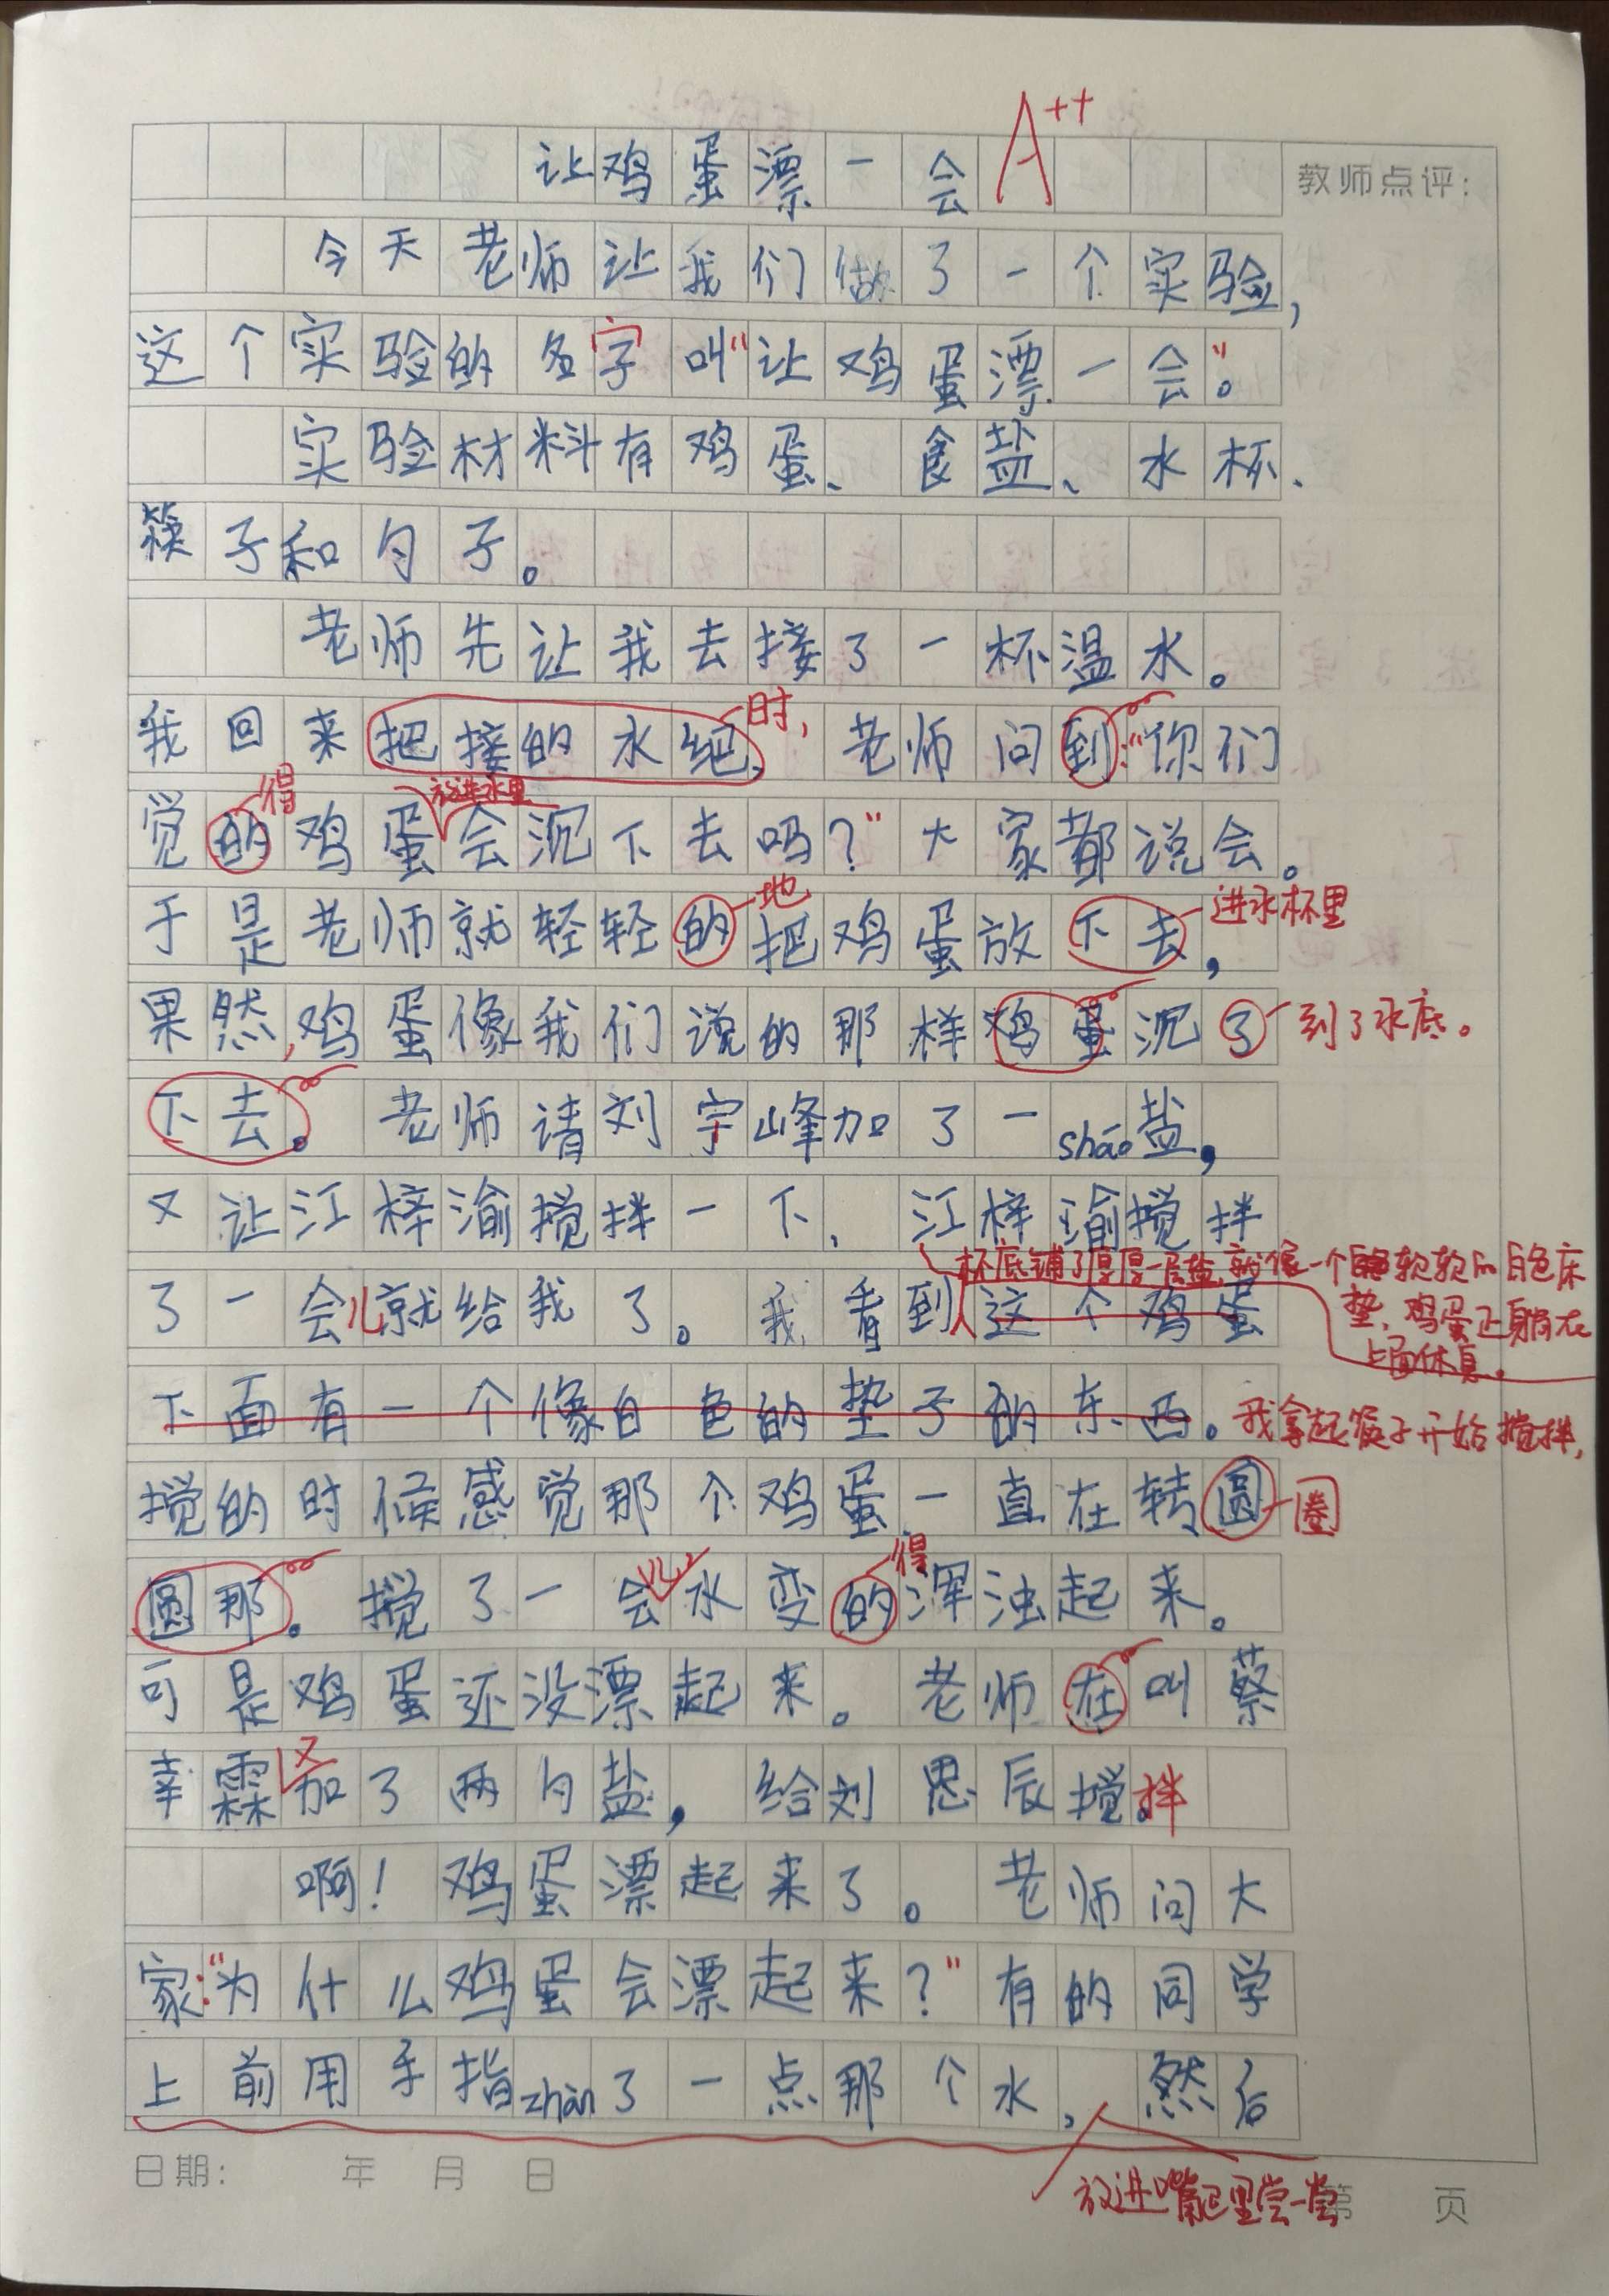 A++
让鸡蛋漂一会
教师点评：
今天老师让我们做了一个实验，
这个实验的名字叫“让鸡蛋漂一会”。
实验材料有鸡蛋、食盐、水杯、
筷子和勺子。
老师先让我去接了一杯温水。
时，
我回来把接的水绝，老师问到：“你们
得
放进水里
觉的鸡蛋会沉下去吗？”大家都说会。
地
进水杯里
于是老师就轻轻的把鸡蛋放下去，
果然，鸡蛋像我们说的那样鸡蛋沉了
到了水底。
下去。老师请刘宇峰加了一sháo盐，
又让江梓渝搅拌一下，江梓瑜搅拌
杯底铺了厚厚一层盐，就像一个软软的白色床
垫，鸡蛋正躺在
上面休息。
了一会儿就给我了。我看到这个鸡蛋
下面有一个像白色的垫子的东西。
我拿起筷子开始搅拌，
搅的时候感觉那个鸡蛋一直在转圆
圈
圆那。搅了一会儿，水变的浑浊起来。
得
可是鸡蛋还没漂起来。老师在叫蔡
又
幸霖加了两勺盐，给刘思辰搅拌
啊！鸡蛋漂起来了。老师问大
家：“为什么鸡蛋会漂起来？”有的同学
上前用手指zhàn了一点那个水，然后
放进嘴巴里尝一尝
日期： 年 月 日
第 页